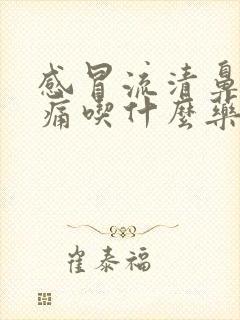 感冒流清鼻
痛喫什麼藥
崔泰福